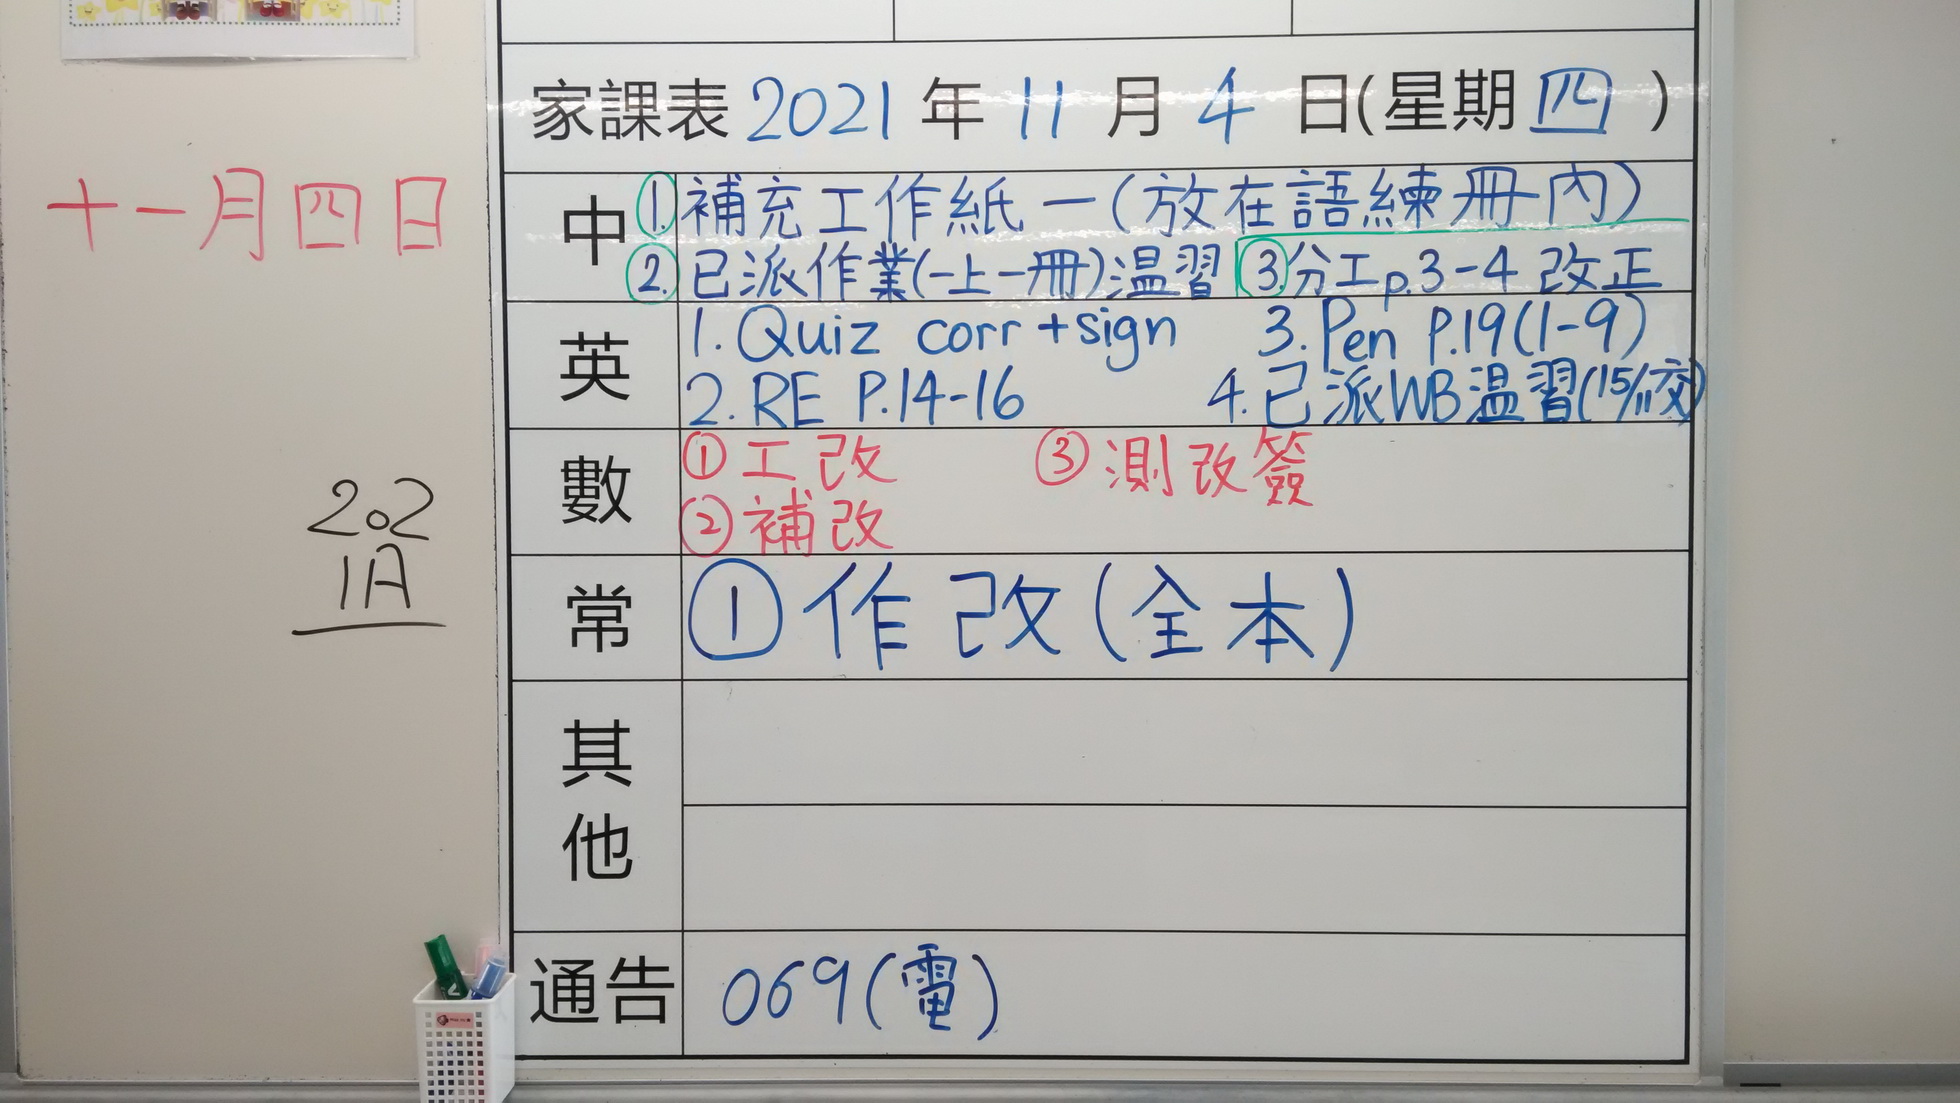 家課表 2021 年 11 月 4 日(星期 四 )
十一月四日
中 1. 補充工作紙一(放在語練冊內)
2. 已派作業(一上一冊)温習 3. 分工p.3-4 改正
英 1. Quiz corr +sign 3. Pen P.19(1-9)
2. RE P.14-16 4. 已派WB温習(15/11交)
數 ① 工改 ③ 測改簽
② 補改
202
1A
常 ① 作改(全本)
其他
通告 069(電)